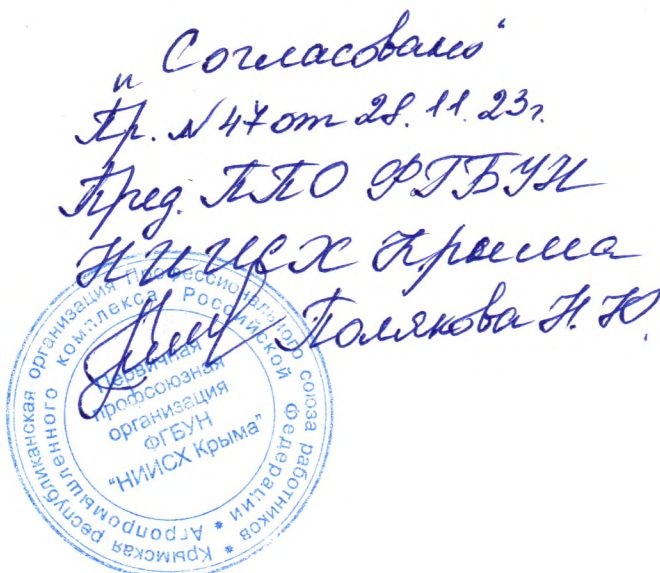 "Согласовано"
Пр. N 47 от 28.11.23г.
Пред. ППО ФГБУН
НИИСХ Крыма
Полякова Н.Ю.
Крымская республиканская организация Профессионального союза работников
Агропромышленного комплекса Российской Федерации
Первичная
профсоюзная
организация
ФГБУН
"НИИСХ Крыма"